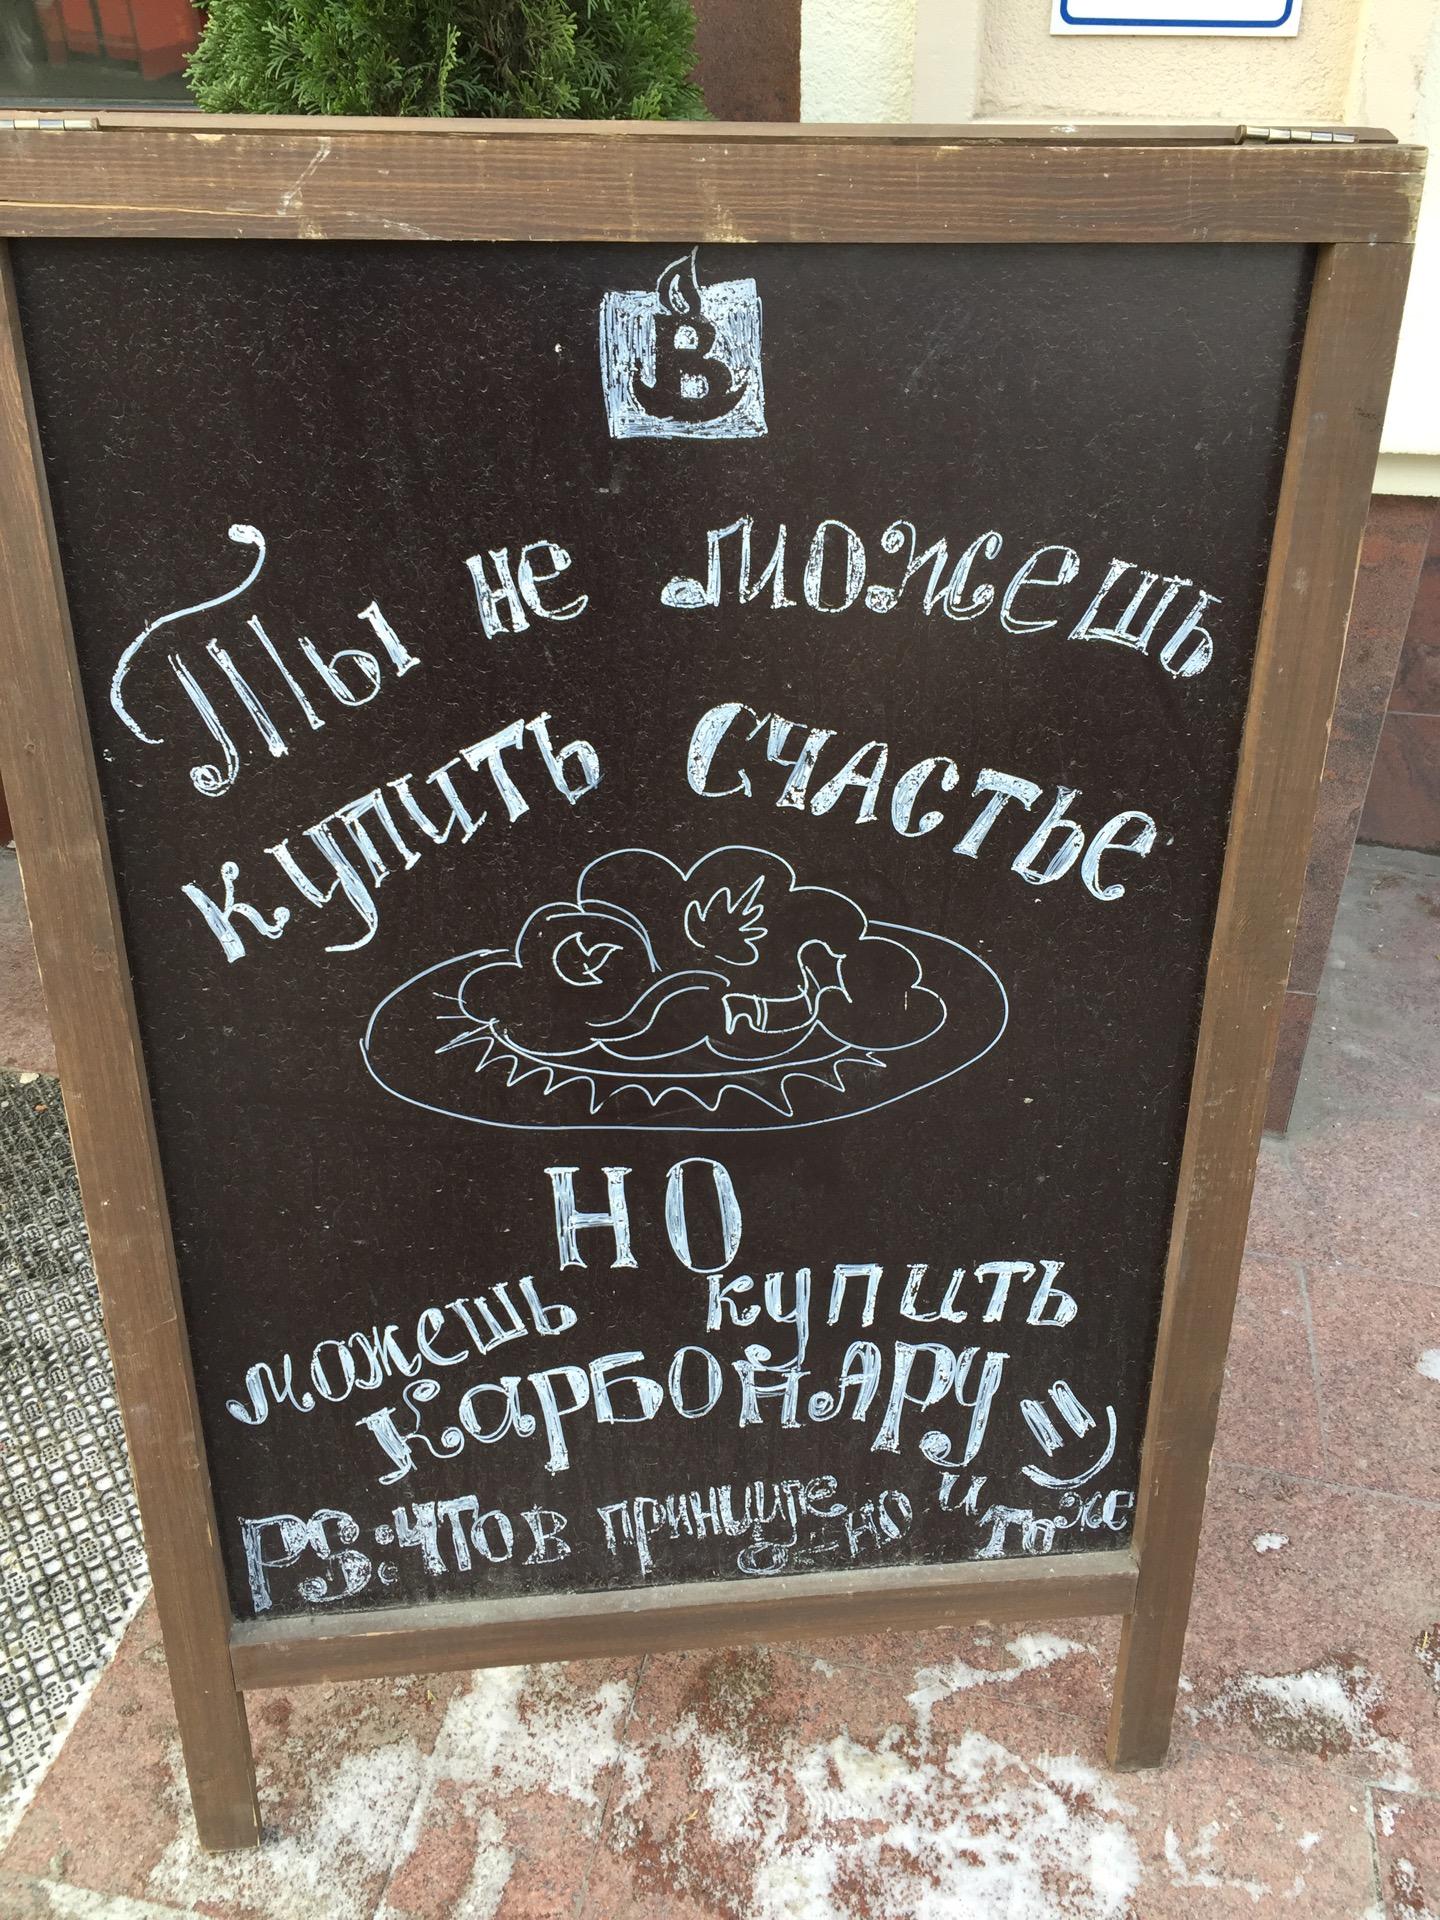 В
Ты не можешь
купить счастье
но
можешь купить
карбонару =)
PS: что в принципе-но и то же